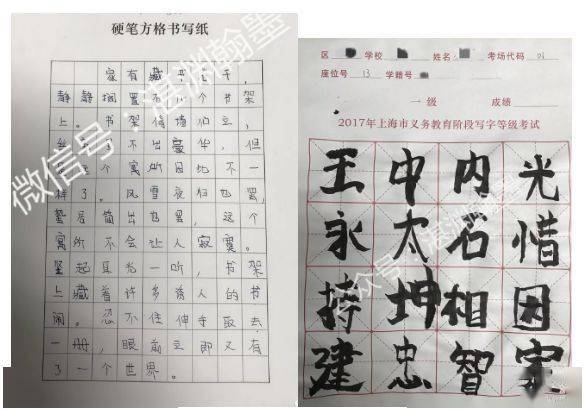 硬笔方格书写纸
家有藏书
静静搁置 几个书架
上。书架倚墙而立，
不出豪华，但
个寓所因此不一
样了。风雪夜归也罢，
蛰居简出也罢，这个
寓所不会让人寂寞。
竖起耳 一听，书架
上藏着许多 人的书
闹。忍不住伸手取去
一册，眼前立即又有
了一个世界。
微信号：湛渊翰墨
区 学校 姓名 考场代码 01
座位号 13 学籍号
一级 成绩
2017年上海市义务教育阶段写字等级考试
王中内光
永太石惜
持坤相因
建忠智家
公众号：湛渊翰墨